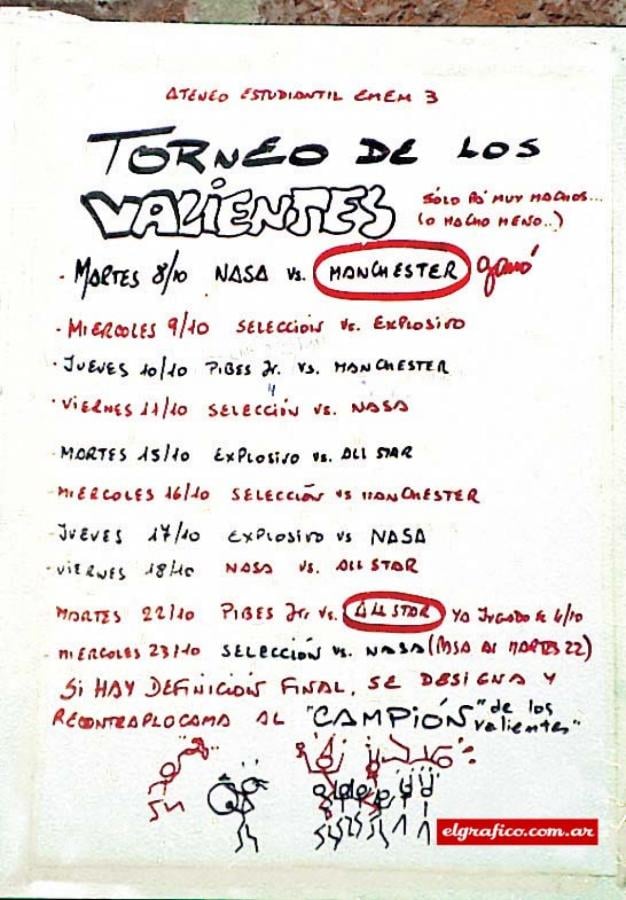 ATENEO ESTUDIANTIL EMEM 3
TORNEO DE LOS
VALIENTES
SÓLO PÁ MUY MACHOS...
(O MACHO MENO..)
- MARTES 8/10 NASA VS. MANCHESTER ganó
- MIERCOLES 9/10 SELECCIÓN VS. EXPLOSIVO
- JUEVES 10/10 PIBES Jr. VS. MANCHESTER
- VIERNES 11/10 SELECCIÓN VS. NASA
- MARTES 15/10 EXPLOSIVO VS. ALL STAR
- MIERCOLES 16/10 SELECCIÓN VS MANCHESTER
- JUEVES 17/10 EXPLOSIVO VS NASA
- VIERNES 18/10 NASA VS. ALL STAR
MARTES 22/10 PIBES Jr. VS. ALL STAR YA JUGADO EL 4/10
- MIERCOLES 23/10 SELECCIÓN VS. NASA (PASA AL MARTES 22)
SI HAY DEFINICIÓN FINAL, SE DESIGNA Y
RECONTRAPLOCAMA AL "CAMPIÓN" de los
valientes"
elgrafico.com.ar